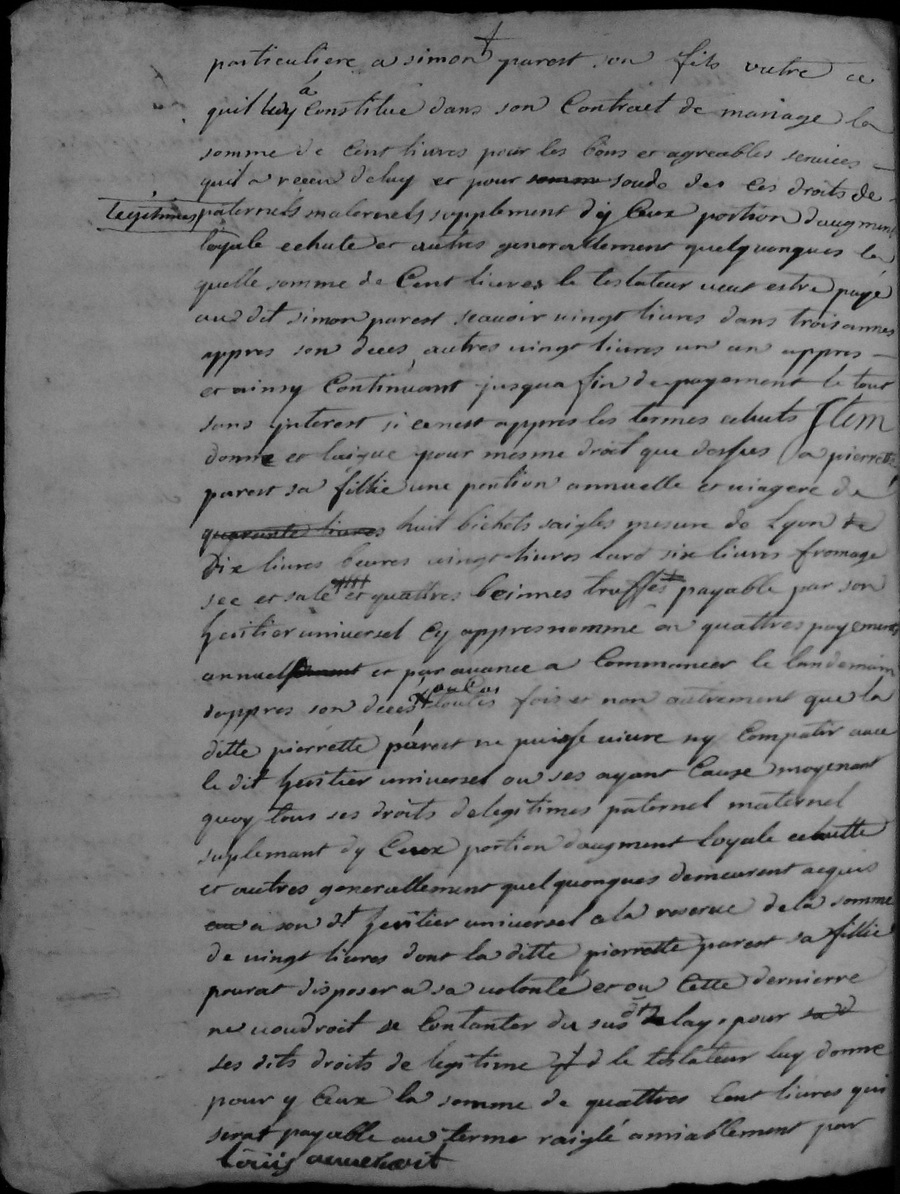 particuliere a simon parest son fils outre ce
quil luy á Constitué dans son Contract de mariage la
somme de Cent livres pour les bons et agreables services
quil a receu de luy et pour somme soude des ces droits de
legitimes paternels maternels supplement d'y Ceux portion d'augment
loyale echute et autres generallement quelquonques la
quelle somme de Cent livres le testateur veut estre payé
au dit simon parest scavoir vingt livres dans trois annes
appres son deces, autres vingt livres un an appres
et ainsy Continuant jusqua fin de payement le tout
sans interest si ce nest appres les termes echuts Item
donne et laigue pour mesme droit que dessus a pierrette
parest sa fillie une pention annuelle et viagere de
quarante livres huit bichets saigles mesure de Lyon de
dix livres beures vingt livres lard six livres fromage
sec et salé et quattres beinnes truffes payable par son
heritier universel Cy appres nommé en quattres payements
annuellement et par avance a Commancer le landemain
d'appres son deces toutes fois et non autrement que la
ditte pierrette parest ne puisse vivre ny Compatir avec
le dit heritier universel ou ses ayant Cause moyenant
quoy tous ses droits de legitimes paternel maternel
suplemant d'y Ceux portion d'augment loyale echutte
et autres generallement quelquonques demeurent acquis
a son dt heritier universel a la reserve de la somme
de vingt livres dont la ditte pierrette parest sa fillie
pourat disposer a sa volonté et ou Cette dernierre
ne voudroit se Contanter du sus dt lay, pour sa d
ses dits droits de legitime le testateur luy donne
pour y Ceux la somme de quattres Cent livres qui
serat payable au terme raiglé amiablement par